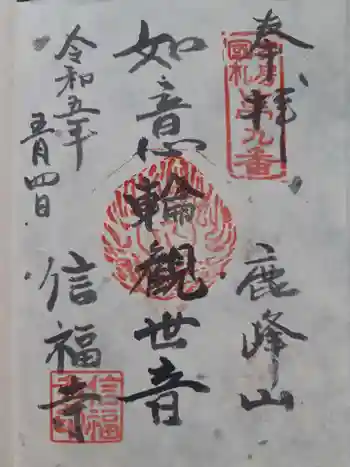 奉拝
第九番
鹿峰山
如意輪観世音
令和五年
五月四日
信福寺
信福